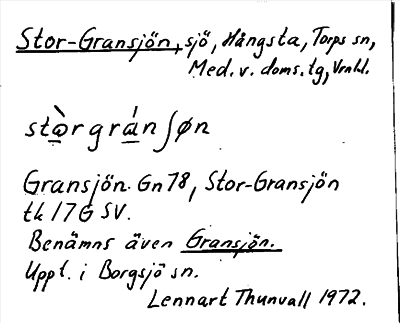 Stor-Gransjön, sjö, Hångsta, Torps sn,
Med. v. doms. tg, Vrnld.
stò̱rgrá̱nʃøn
Gransjön Gn78, Stor-Gransjön
tk 17G SV.
Benämns även Gransjön.
Uppt. i Borgsjö sn.
Lennart Thunvall 1972.